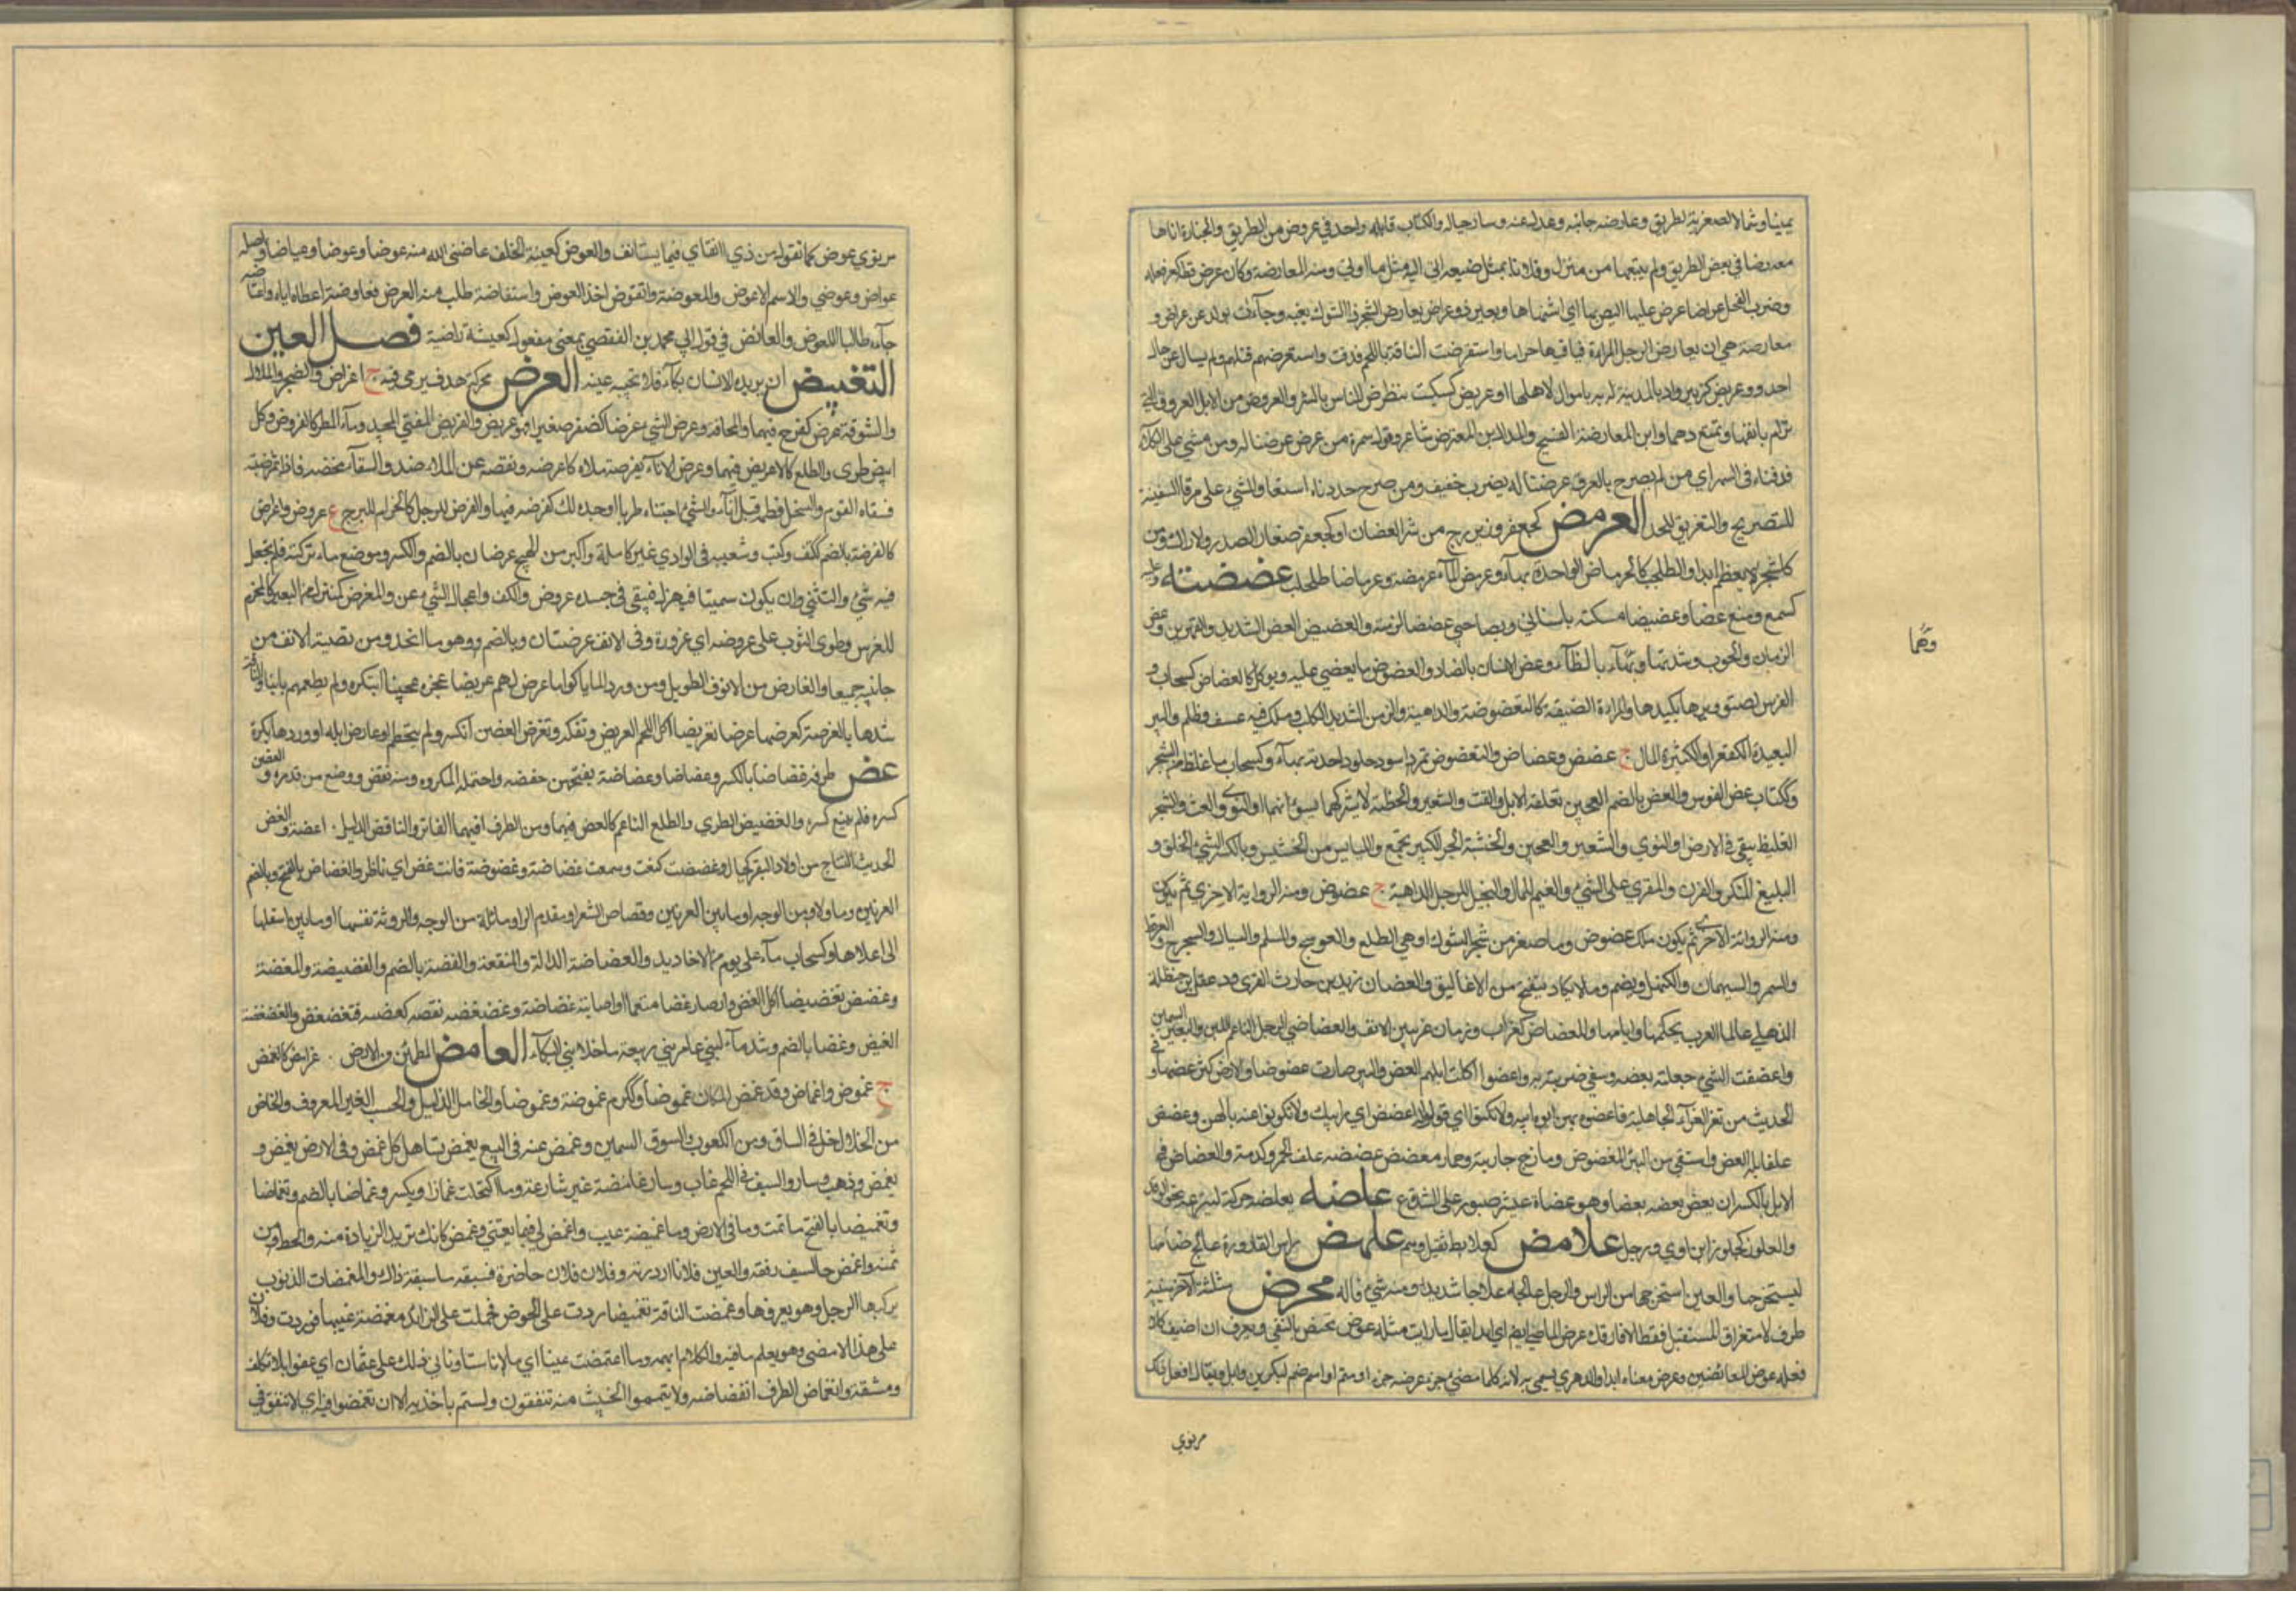 يمينا وشمالا لصعوبة الطريق وعارضه جانبه وعدل عنه وسار حياله والكتاب قابله واحد في عروض من الطريق والجنازة اتاها
معترضا في بعض الطريق ولم يتبعها من منزله وفلانا بمثل صنيعه اتى اليه مثل ما اتى ومنه المعارضة وكان عرض
وضرب الفحل عراضا عرض عليها ليضربها ان اشتهاها وبعير ذو عراض يعارض الشجر ذا الشوك بفيه وجاءت بولد عن عراض و
معارضة هي ان يعارض الرجل المراة فياتيها حراما واستعرضت الناقة باللحم قذفت واستعرضهم قتلهم ولم يسال عن حال
احد وعريض كزبير واد بالمدينة به اموال لاهلها وعريض كسكيت يتعرض الناس بالشر والعروض من الابل
بانفها وابن المعارضة السفيح والمذال بن المعترض شاعر وقول سمرة من عرض عرضنا له ومن مشى على الكلاء
قذفناه في النهر اي من لم يصرح بالقذف عرضنا له بضرب خفيف ومن صرح حددناه استعار المشي على مرقاة السفينة
للتصريح والتغريق للحد العرمض كجعفر وزبرج من شجر العضاه او كجعفر صغار السدر والاراك ومن
كل شجر لا يعظم ابدا والطحلب كالعرماض الواحدة بهاء وعرمض الماء عرمضة وعرماضا طحلب عضضته وعليه
كسمع ومنع عضا وعضيضا امسكته باسناني وبصاحبي عضيضا لزمته والعضيض العض الشديد والقرين وعض
الزمان والحرب شدتهما او هما بالظاء وعض الاسنان بالضاد والعضوض ما يعض عليه ويؤكل كالعضاض كسحاب و
القوس لصق وترها بكبدها والمراة الضيقة كالتعضوضة والداهية والزمن الشديد الكلب وملك فيه عسف وظلم والبئر
البعيدة القعر او الكثيرة الماء ج عضض وعضاض والتعضوض تمر اسود حلو واحدته بهاء وكسحاب ما غلظ من الشجر
وككتاب عض الفرس والعض بالضم العجين تعلفه الابل والقت والشعير والحنطة لا يشركهما شيء او النوى والقت والشجر
الغليظ يبقى في الارض او النوى والشعير والعجين والخشب الجزل الكبير يجمع واليابس من الحشيش وبالكسر السيئ الخلق و
البليغ المنكر والقرن والمقوى على الشيء والقيم للمال والبخيل والرجل الداهية ج عضوض ومنه الرواية الاخرى ثم يكون
ومنه الرواية الاخرى ثم يكون ملك عضوض وما صغر من شجر الشوك او هي الطلح والعوسج والسلم والسيال والسرح والعرفط
والسمر والشبهان والكنهبل ويضم وما لا يكاد ينفتح من الاغاليق والعضان زيد بن حارث النمري ودغفل بن حنظلة
الذهلي عالما العرب بحكمها وايامها والعضاض كغراب ورمان عرنين الانف والعضاضي الرجل الناعم اللين والبعير السمين
واعضضت الشيء جعلته يعضه وسيفي ضربته به واعضوا اكلت ابلهم العض والبئر صارت عضوضا والارض كثر عضها و في
الحديث من تعزى بعزاء الجاهلية فاعضوه بهن ابيه ولا تكنوا اي قولوا له اعضض اير ابيك ولا تكنوا عنه بالهن وعضض
علف ابله العض واستقى من البئر العضوض ومازح جاريته وحمار معضض عضضته الحمر وكدمته والعضاض في
الابل بالكسر ان يعض بعضه بعضا وهو عضاض عيش صبور على الشدة ع علضه يعلضه حركه لينزعه نحو الوتد
والعلوض كجلوز ابن اوى ورجل علامض كعلابط ثقيل وخم علهض راس القارورة عالج صمامها
ليستخرجها والعين استخرجها من الراس والرجل عالجه علاجا شديدا ومنه شيء ناله عوض مثلثة الاخر مبنية
ظرف لاستغراق المستقبل فقط لا افارقك عوض او الماضي ايضا اي ابدا يقال ما رايت مثله عوض مختص بالنفي ويعرب ان اضيف كلا
فعله عوض العائضين وعوض معناه ابدا او الدهر سمي به لانه كلما مضى جزء عوضه جزء او قسم او اسم صنم لبكر بن وائل ويقال افعل ذلك
وهما
من ذي
من ذي عوض كما تقول من ذي انف اي فيما يستانف والعوض كعنب الخلف عاضني الله منه عوضا وعوضا وعياضا واصله
عواض وعوضني والاسم العوض والمعوضة وتعوض اخذ العوض واستعاضه طلب منه العوض فعاوضه اعطاه اياه واعتاضه
جاءه طالبا للعوض والعائض في قول ابي محمد الفقعسي بمعنى مفعول كعيشة راضية فصل الغين
التغبيض ان يريد الانسان بكاء فلا تجيبه عينه الغرض محركة هدف يرمى فيه ج اغراض والضجر والملال
والشوق غرض كفرح فيهما والمخافة وغرض الشيء غرضا كصغر صغرا فهو غريض والغريض المغني المجيد وماء المطر كالمغروض وكل
ابيض طري والطلع كالاغريض فيهما وغرض الاناء يغرضه ملاه كاغرضه ونقصه عن الملء ضد والسقاء مخضه فاذا ثمر صبه
فسقاه القوم والسخل فطمه قبل اناه والشيء اجتناه طريا او جذه كذلك كغرضه فيهما والغرض للرحل كالحزام للسرج ع غروض واغراض
كالغرضة بالضم ككتف وكتب وشعبة في الوادي غير كاملة واكبر من الهجيج ع غرضان بالضم والكسر وموضع ماء تركته فلم تجعل
فيه شيئا والتثني وان يكون سمينا فيهزل فيبقى في جسده غروض والكف واعجال الشيء عن والمغرض كمنزل من البعير كالمحزم
للفرس وطوى الثوب على غروضه اي غروره وفي الانف غرضتان وبالضم وهو ما انحدر من قصبة الانف من
جانبيه جميعا والغارض من الانوف الطويل ومن ورد الماء باكرا واغرض لهم غريضا عجن عجينا ابتكره ولم يطعمهم بائتا والناقة
شدها بالغرضة كغرضها غرضا وغرض تغريضا اكل اللحم الغريض وتفكه وتغرض الغصن انكسر ولم يتحطم وغارض ابله اوردها بكرة
غض طرفه غضاضا بالكسر وغضا وغضاضا وغضاضة بفتحهن خفضه واحتمل المكروه ومنه نقص ووضع من قدره و الغصن
كسره فلم ينعم كسره والغضيض الطري والطلع الناعم كالغض فيهما ومن الطرف الفاتر والناقص الذليل اغضة والغض
الحديث النتاج من اولاد البقر كجبال وغضضت كمنعت وسمعت غضاضة وغضوضة فانت غض اي ناضر والغضاض بالفتح وبالضم
العرنين وما والاه من الوجه او ما بين العرنين وقصاص الشعر او مقدم الراس وما يليه من الوجه والروثة نفسها او ما بين اسفلها
الى اعلاها وكسحاب ماء على يوم من الاخاديد والغضاضة الذلة والمنقصة والغضة بالضم والغضيضة والمغضة
وغضض تغضيضا اكل الغض او صار غضا متنعما او اصابته غضاضة وغضغضه نقصه كغضه فتغضغض والغضغضة
الغيض وغضيا بالضم وشد ماء لبني عامر بن ربيعة ما خلا بني البكاء الغامض المطمئن من الارض غوامض كالغمض
ج غموض واغماض وقد غمض المكان غموضا وككرم غموضة وغموضا والخامل الذليل والحسب الغير المعروف والغاض
من الخلاخل في الساق ومن الكعوب والسوق السمين وغمض عنه في البيع يغمض تساهل كاغمض وفي الارض يغمض و
يغمض وذهب وسار والسيف في اللحم غاب ودار غامضة غير شارعة وما اكتحلت غماضا ويكسر وغماضا بالضم وتغماضا
وتغميضا بالفتح ما نمت وما في الارض وما غميضة عيب واغمض لي فيما بعتني وغمض كانك تريد الزيادة منه والحط من
ثمنه واغمض حد السيف رققه والعين فلانا ازدرته وفلان فلانا حاضره فسبقه بعد ما سبقه ذاك والمغمضات الذنوب
يركبها الرجل وهو يعرفها وغمضت الناقة تغميضا ردت على الحوض فحملت على الذائد مغمضة عينيها فوردت وفلان
على هذا الامر مضى وهو يعلم ما فيه والكلام ابهمه وما اغتمضت عيناي ما نامتا واتاني ذلك على اغتماض اي عفوا بلا تكلف
ومشقة وانغماض الطرف انغضاضه ولا تيمموا الخبيث منه تنفقون ولستم باخذيه الا ان تغمضوا فيه اي لا تنفق في